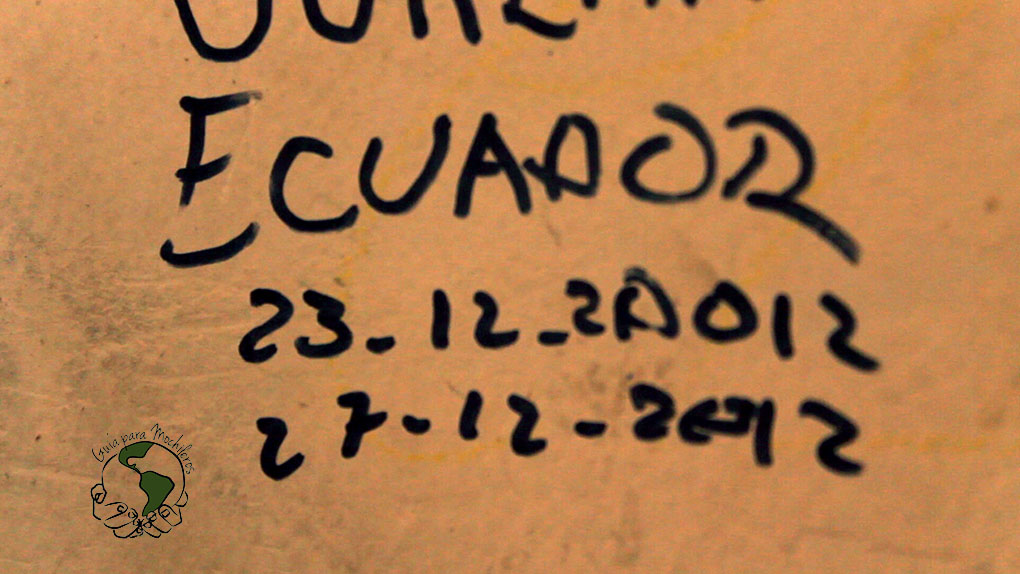 ECUADOR
23-12-20012
27-12-2012
Guía para Mochileros